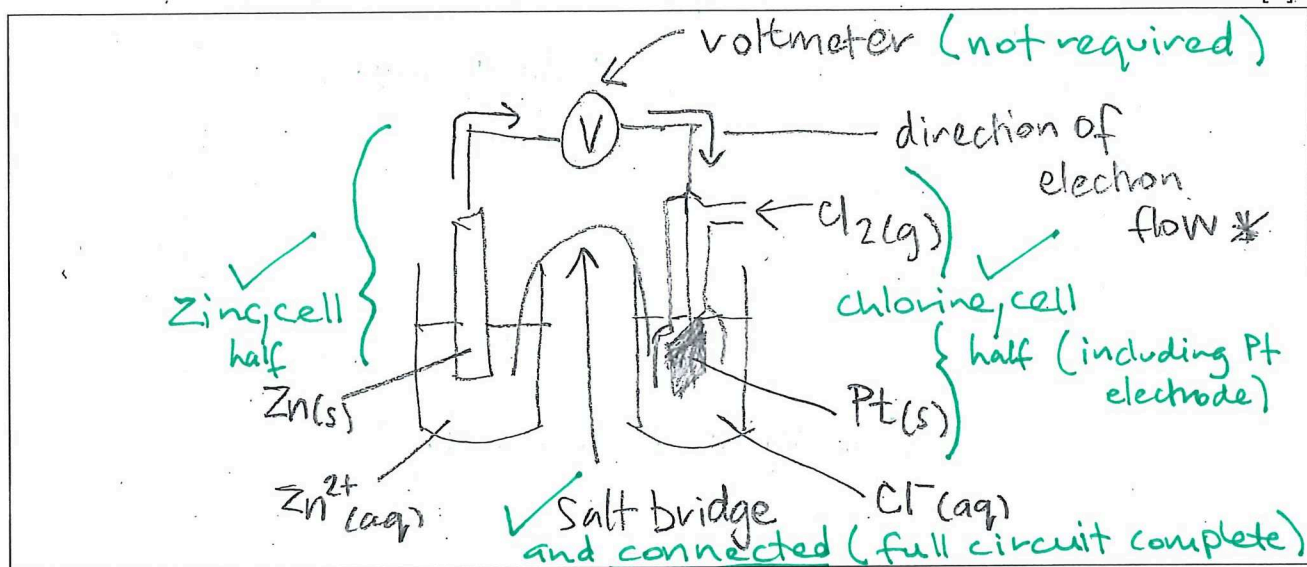 voltmeter (not required)
V
direction of
electron
flow *
Cl2(g)
Zinc cell
half
chlorine cell
half (including Pt
electrode)
Zn(s)
Pt(s)
Zn2+(aq)
Salt bridge
Cl-(aq)
and connected (full circuit complete)